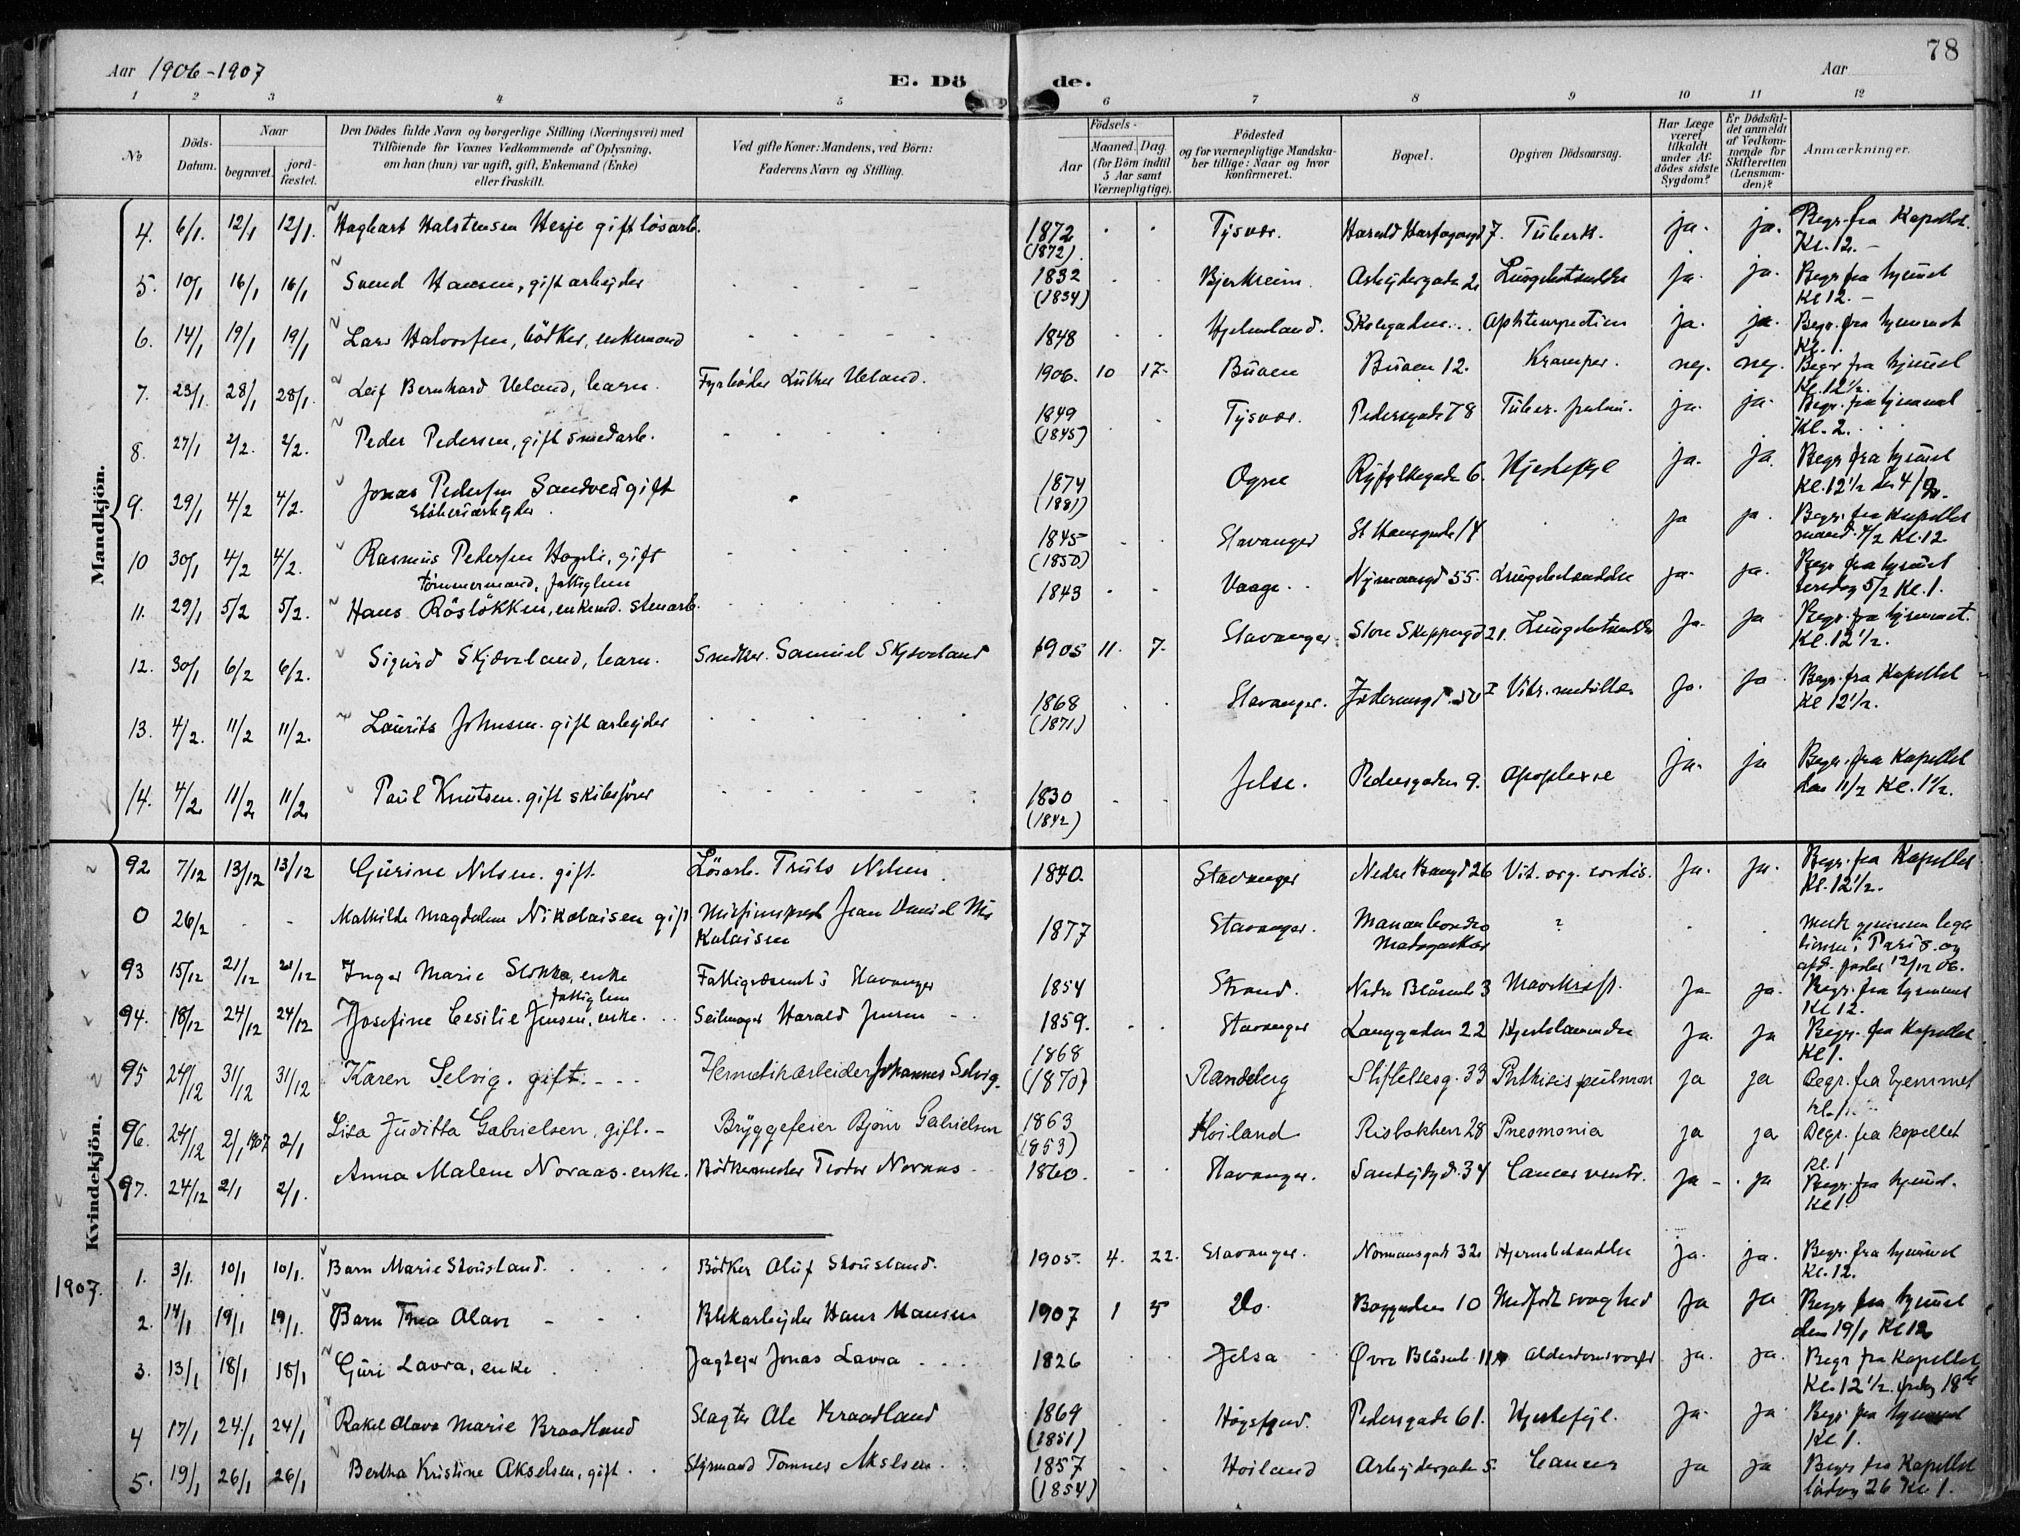 Aar 1906-1907
E. Dö de.
Aar
78
1 2 3 4 5 6 7 8 9 10 11 12
№
Döds-Datum.
Naar
begravet.
jord-fæstet.
Den Dödes fulde Navn og borgerlige Stilling (Næringsvei) med
Tilföiende for Voxnes Vedkommende af Oplysning,
om han (hun) var ugift, gift, Enkemand (Enke)
eller fraskilt.
Ved gifte Koner: Mandens, ved Börn:
Faderens Navn og Stilling.
Födsels-
Aar
Maaned. Dag
(for Börn indtil
5 Aar samt
Værnepligtige).
Födested
og for værnepligtige Mandska-
ber tillige: Naar og hvor
konfirmeret.
Bopæl.
Opgiven Dödsaarsag.
Har Læge
været
tilkaldt
under Af-
dödes sidste
Sygdom?
Er Dödsfal-
det anmeldt
af Vedkom-
mende for
Skifteretten
(Lensman-
den)?
Anmærkninger.
Mandkjön.
4. 6/1. 12/1 12/1. Hagbart Halstensen Hesje gift lösarb. 1872 (1872) Tysvær. Harald Haarfagersgd 7. Tuberk. ja. ja. Begr. fra Kapellet. Kl. 12.
5. 10/1 16/1 16/1 Svend Hansen, gift arbejder 1832 (1834) Bjerkreim. Arbejdergaden 2 ja. ja. Begr. fra hjemmet Kl 12.
6. 14/1 19/1 19/1 Lars Halvorsen, bödker, enkemand 1848 Hjelmeland. Skolegaden ja. ja. Begr. fra hjemmet Kl. 1.
7. 23/1. 28/1 28/1. Leif Bernhard Ueland, barn. Fyrböder Luther Ueland. 1906. 10 17. Buöen Buöen 12. Kramper. nej. nej. Begr fra hjemmet Kl. 12½.
8. 27/1 2/2. 2/2. Peder Pedersen, gift smedarb. 1849 (1845) Tysvær. Pedersgade 78 Tuber. pulm. ja. ja. Begr. fra hjemmet Kl. 2.
9. 29/1 4/2 4/2. Jonas Pedersen Sandved gift
1874 (1881) Ogne Ryfylkegade 6. Hjertefejl ja. ja. Begr fra hjemmet Kl. 12½ den 4/2.
10 30/1 4/2 4/2. Rasmus Pedersen gift
Tömmermand, fattiglem 1845 (1850) Stavanger St Hansgade 14 ja ja. Begr. fra Kapellet mand. 4/2 Kl. 12
11. 29/1 5/2 5/2. Hans Röslökken, enkemd. stenarb. 1843 Vaage Nymansgd 55. ja. ja. Begr fra hjemmet tirsdag 5/2 Kl. 1.
12. 30/1 6/2 6/2. Sigurd Skjæveland, barn. Snedker. Samuel Skjæveland 1905 11. 7. Stavanger. Store Skippergd 21. ja. ja Begr. fra hjemmet. Kl. 12½.
13. 4/2. 11/2 11/2. Laurits Johnsen. gift arbejder 1868 (1871) Stavanger. ja. ja Begr. fra Kapellet Kl 12½.
14. 4/2 11/2 11/2 Paul Knutsen. gift skibsfører 1830 (1842) Jelse. Pedersgaden 9. Apoplexie ja. ja Begr. fra Kapellet den 11/2 Kl. 1½.
Kvindekjön.
92 7/12 13/12 13/12 Gurine Nilsen. gift. Lösarb. Truls Nilsen. 1840. Stavanger 26 Vit. org. cordis. ja. ja. Begr. fra Kapellet Kl. 12½.
0 26/2 Mathilde Magdalene Nikolaisen gift Missionsprest Jean Daniel Ni-
kolaisen 1877 Stavanger. Manambondro
Madagaskar ? i Paris og
12/12 06.
93 15/12 21/12 21/12 Inger Marie Slokka, enke
fattiglem Fattigvæsenet i Stavanger 1854 Strand. Nedre Blåsenb 3 Mavekræft. ja. ja. Begr. fra hjemmet Kl 12.
94. 18/12 24/12 24/12 Josefine Cesilie Jensen, enke. Seilmager Harald Jensen 1859. Stavanger Langgaden 22 Hjertelammelse ja. ja Begr. fra Kapellet Kl 1.
95 24/12 31/12 31/12 Karen Selvig. gift. Hermetikarbeider Johannes Selvig. 1868 (1870) Randeberg Stiftelsesg. 33 Phthisis pulmon ja ja Begr. fra hjemmet kl. 1.
96. 24/12 2/1 1907 2/1 Lisa Juditta Gabrielsen, gift. Bryggefeier Björn Gabrielsen 1863 (1853) Höiland Risbakken 28 Pneomonia ja ja Begr. fra kapellet kl. 1
97. 24/12 2/1 2/1. Anna Malene Noraas. enke. Bödkermester Teodor Noraas 1860. Stavanger. 34 Cancer ventr. ja ja Begr. fra hjemmet. Kl 1.
1907.
1. 3/1. 10/1 10/1. Barn Marie Stousland. Bödker Oluf Stousland. 1905. 4. 22. Stavanger. Normansgade 32 Hjernebetændelse ja. ja. Begr. fra hjemmet Kl. 12.
2. 14/1 19/1 19/1. Barn Thea Olava Blikarbejder Hans Hansen 1907 1 5 Do. Baggaden 10 Medfødt svaghed ja ja Begr fra hjemmet den 19/1 Kl 12
3. 13/1 18/1 18/1 Guri Lavra, enke Jonas Lavra 1826 Jelsa Øvre Blåsenb 11 ja. ja. Begr fra Kapellet Kl. 12½. fredag 18de
4 17/1 24/1 24/1 Rakel Olava Marie Braadland Slagter Ole Braadland 1869 (1851) Högsfjord. Pedersgade 61. Hjertefejl. ja. ja. Begr fra hjemmet Kl 1.
5. 19/1 26/1 26/1 Bertha Kristine Akselsen, gift. Styrmand Tonnes Akselsen 1857 (1854) Höiland Arbejdergade 5. Cancer ja ja Begr fra Kapellet lördag 26 Kl 1.